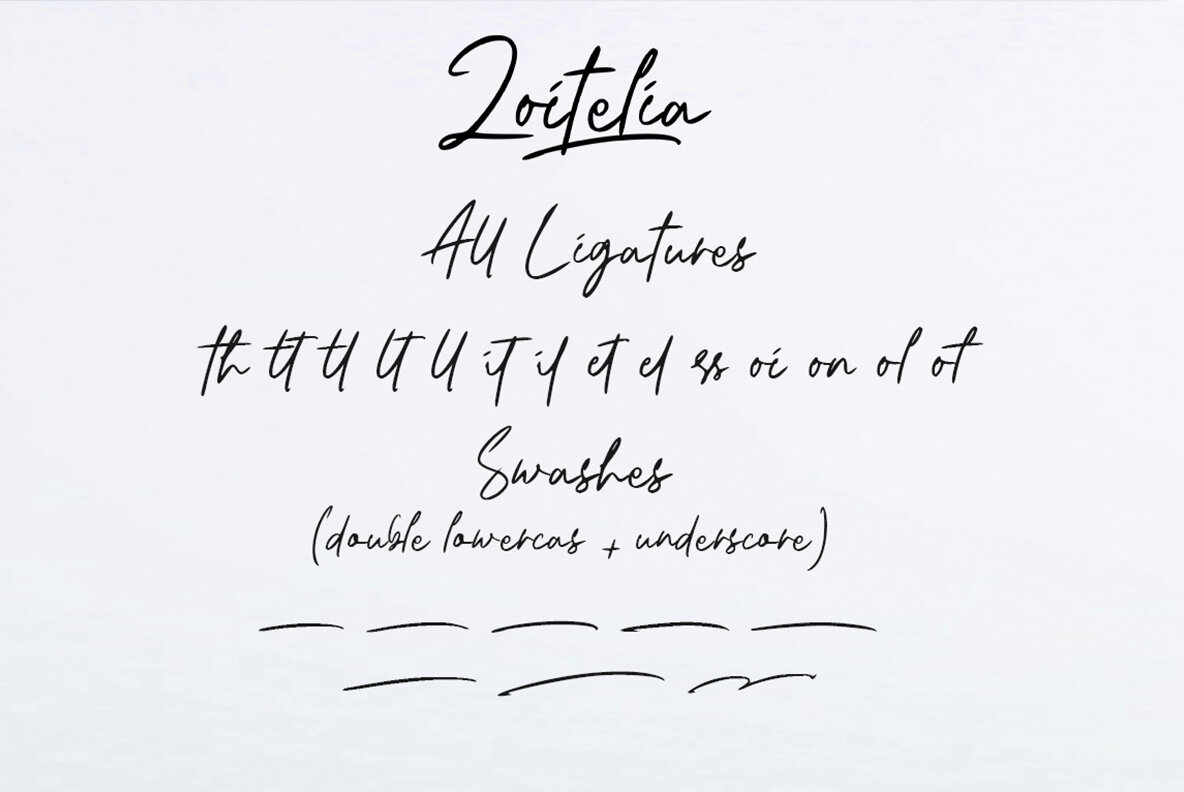 Loitelia
All Ligatures
th tt tl lt ll it il et el ss oi on ol ot
Swashes
(double lowercas + underscore)